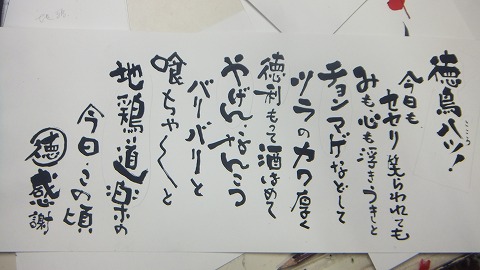 徳島ハツ!
こころ
今日も
セセリ笑らわれても
みも、心も浮きうきしと
チョンマゲなどして
ツラのカワ厚く
徳利もって酒はめて
やげんなんこつ
バリバリーと
喰らちゃ〱と
地鶏道楽の
今日この頃
徳 感謝